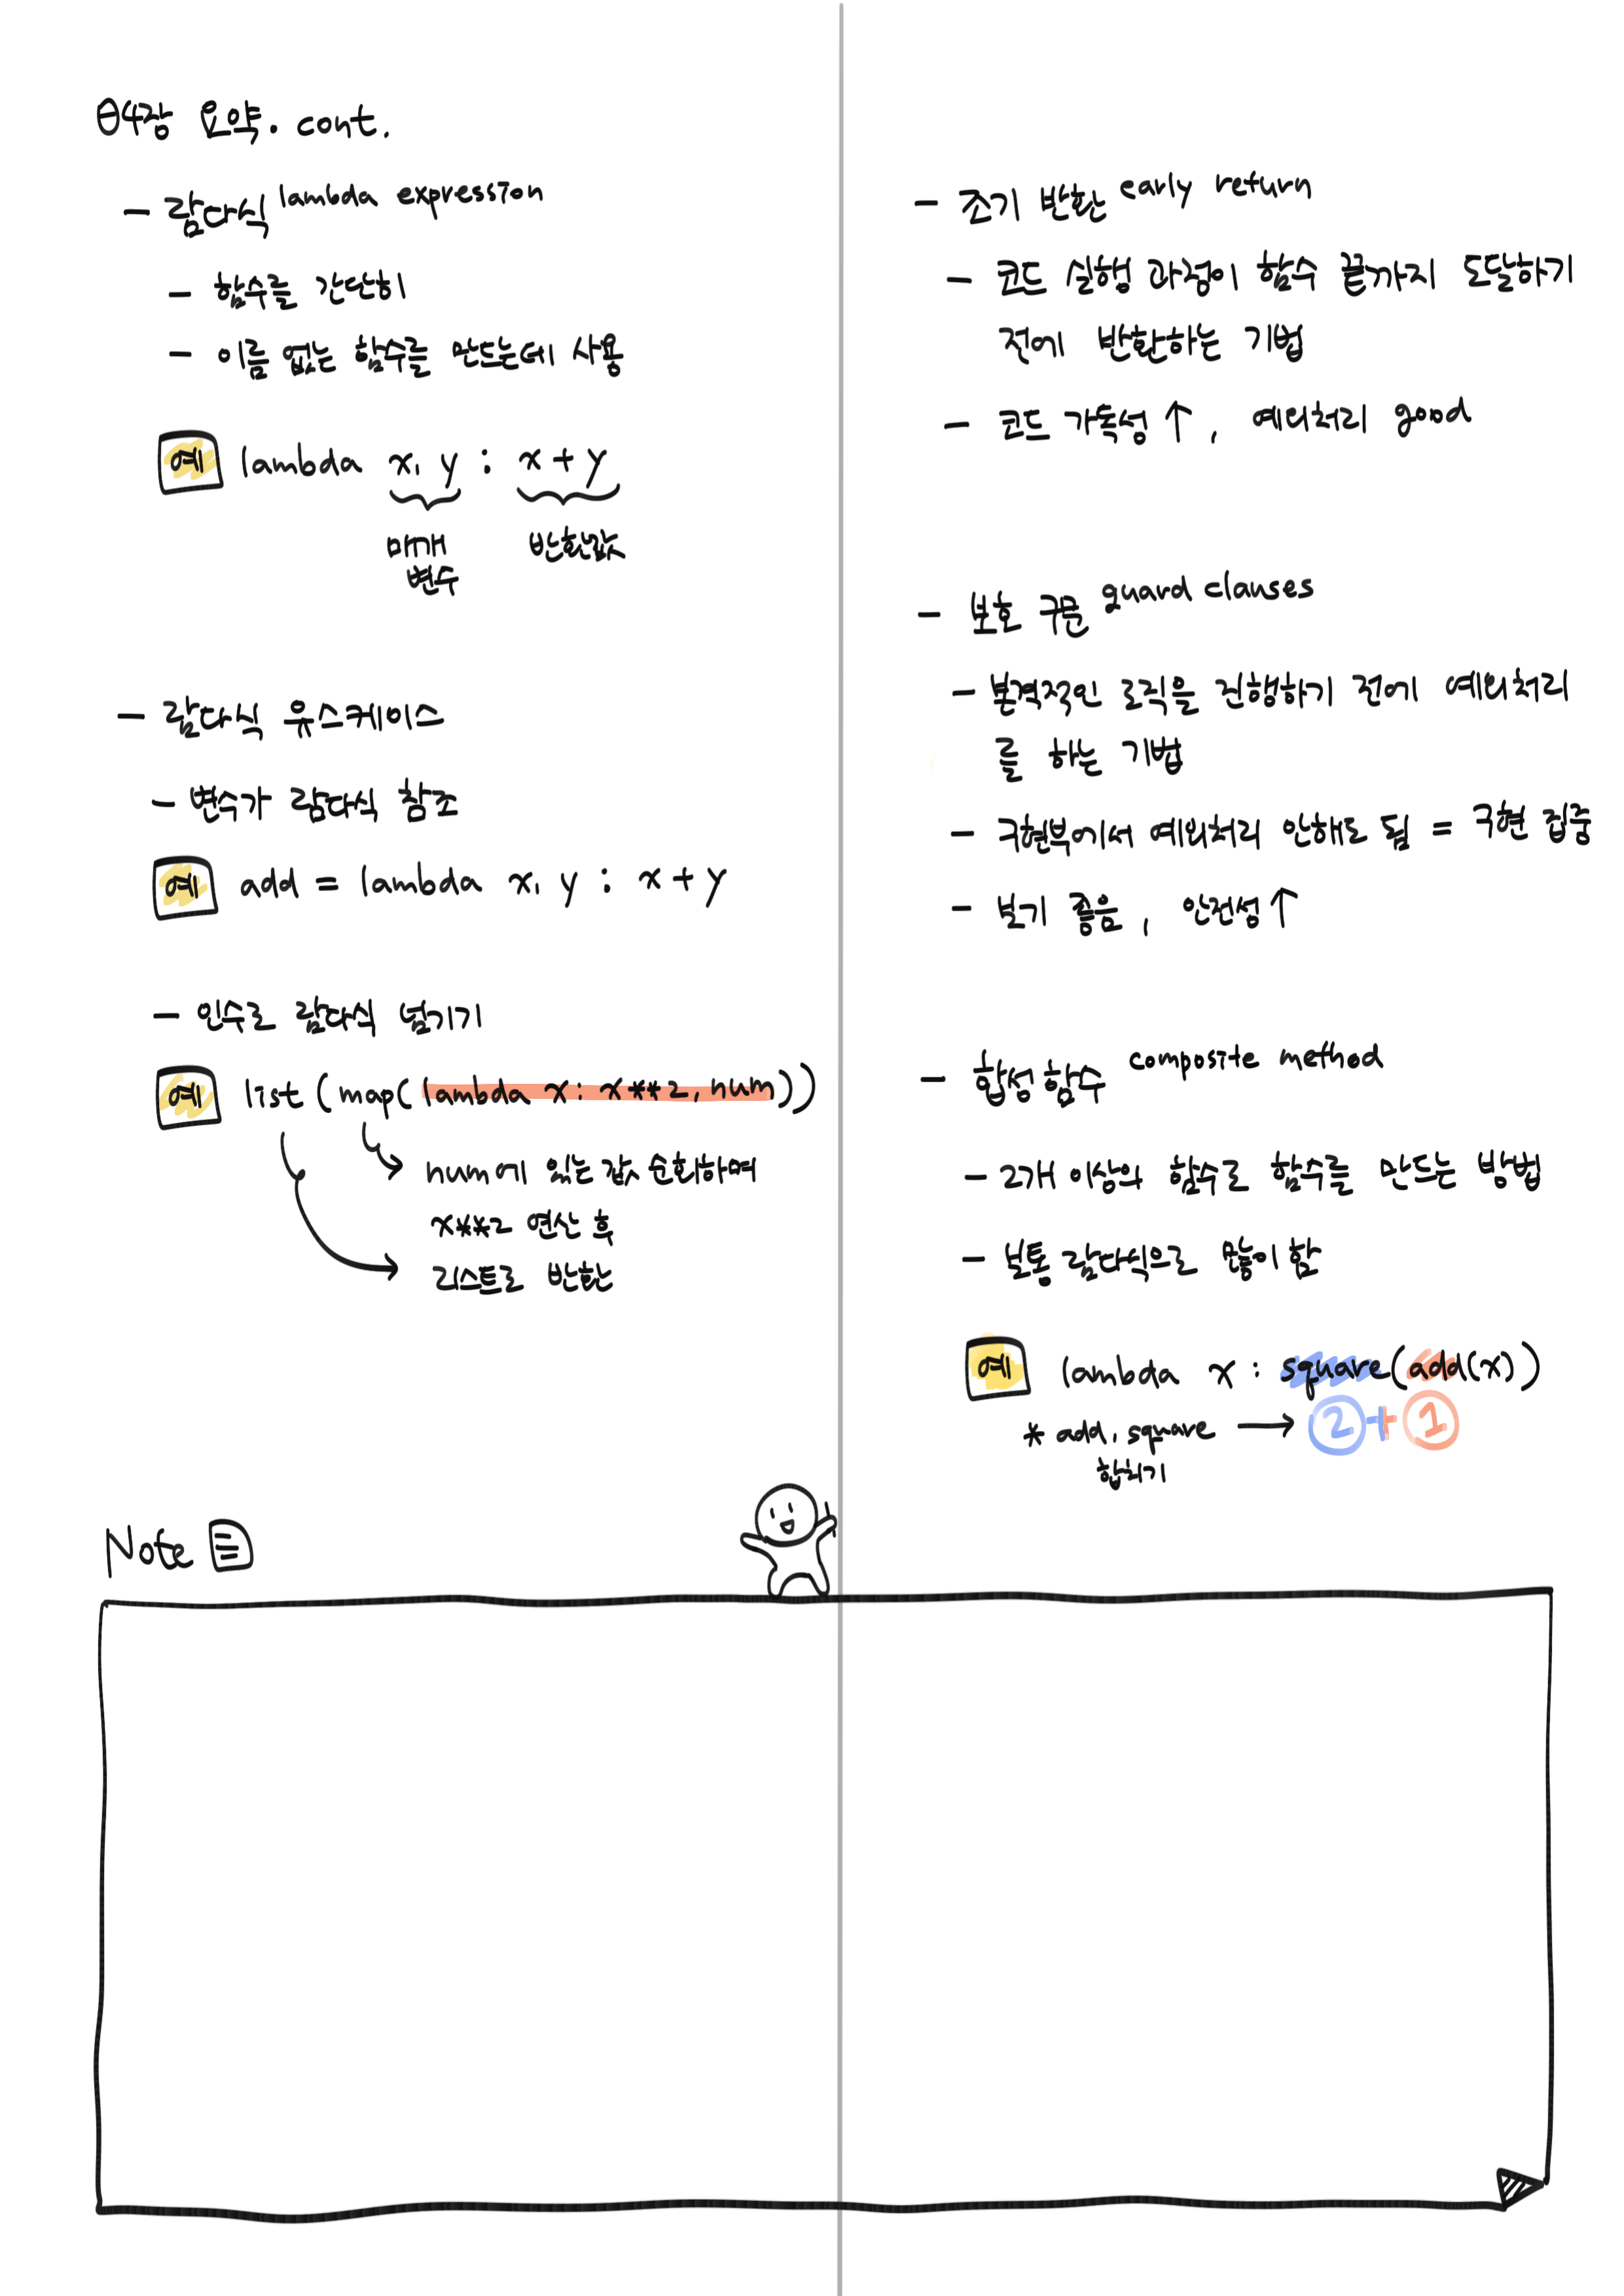 04장 요약. cont.
- 람다식 lambda expression
- 함수를 간단히
- 이름 없는 함수를 만드는데 사용
예 lambda x, y : x + y
매개 반환값
변수
- 람다식 유스케이스
- 변수가 람다식 참조
예 add = lambda x, y : x + y
- 인수로 람다식 넘기기
예 list (map(lambda x: x**2, num))
num에 있는 값 순회하며
x**2 연산 후
리스트로 반환
- 조기 반환 early return
- 코드 실행 과정이 함수 끝까지 도달하기
전에 반환하는 기법
- 코드 가독성 ↑, 예외처리 good
- 보호 구문 guard clauses
- 본격적인 로직을 진행하기 전에 예외처리
를 하는 기법
- 구현부에서 예외처리 안해도 됨 = 구현 집중
- 보기 좋음, 안전성 ↑
- 합성 함수 composite method
- 2개 이상의 함수로 함수를 만드는 방법
- 보통 람다식으로 많이 함
예 lambda x : square(add(x))
* add, square → ② + ①
합치기
Note